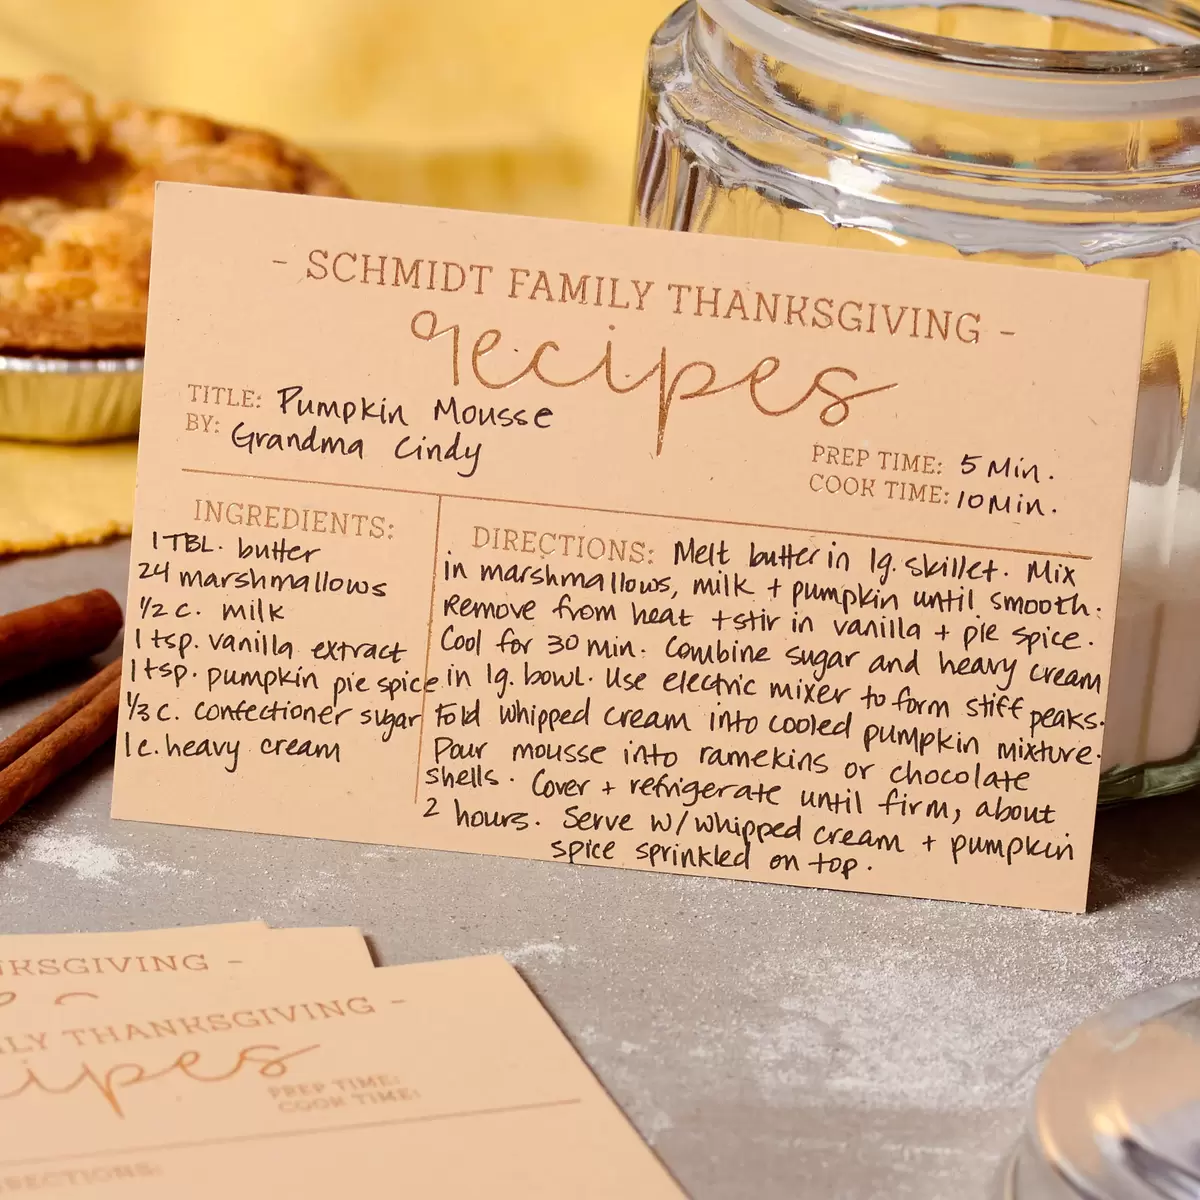 - SCHMIDT FAMILY THANKSGIVING -
recipes
TITLE: Pumpkin Mousse
BY: Grandma Cindy
PREP TIME: 5 Min.
COOK TIME: 10 Min.
INGREDIENTS:
1 TBL. butter
24 marshmallows
1/2 c. milk
1 tsp. vanilla extract
1 tsp. pumpkin pie spice
1/3 c. confectioner sugar
1 c. heavy cream
DIRECTIONS: Melt butter in lg. skillet. Mix
in marshmallows, milk + pumpkin until smooth.
Remove from heat + stir in vanilla + pie spice.
Cool for 30 min. Combine sugar and heavy cream
in lg. bowl. Use electric mixer to form stiff peaks.
Fold whipped cream into cooled pumpkin mixture.
Pour mousse into ramekins or chocolate
shells. Cover + refrigerate until firm, about
2 hours. Serve w/ whipped cream + pumpkin
spice sprinkled on top.
NKSGIVING -
LY THANKSGIVING -
ipes
PREP TIME:
COOK TIME:
RECTIONS: